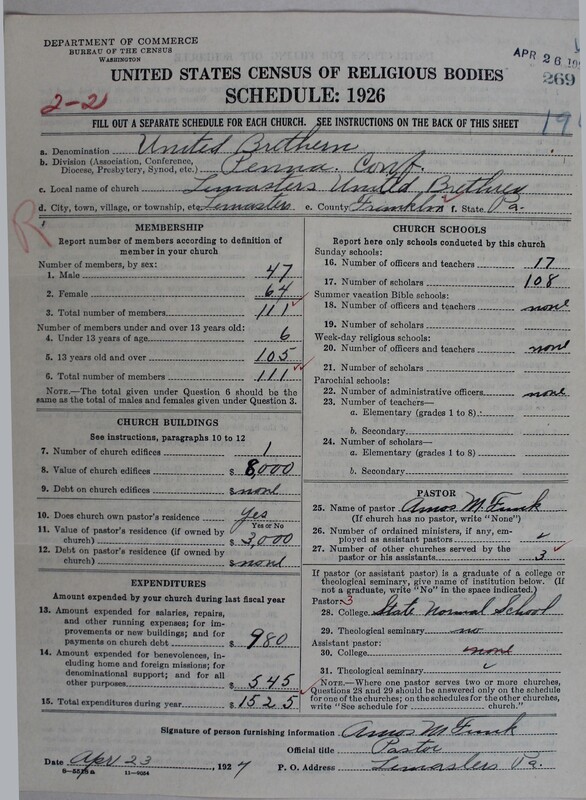 DEPARTMENT OF COMMERCE
BUREAU OF THE CENSUS
WASHINGTON
APR 26 19
269
UNITED STATES CENSUS OF RELIGIOUS BODIES
SCHEDULE: 1926
2-21
FILL OUT A SEPARATE SCHEDULE FOR EACH CHURCH. SEE INSTRUCTIONS ON THE BACK OF THIS SHEET
a. Denomination United Brethern
b. Division (Association, Conference, Diocese, Presbytery, Synod, etc.) Penna. Conf.
c. Local name of church Lemasters United Brethren
d. City, town, village, or township, etc. Lemasters e. County Franklin f. State Pa.
R
MEMBERSHIP
Report number of members according to definition of
member in your church
Number of members, by sex:
1. Male 47
2. Female 64
3. Total number of members 111
Number of members under and over 13 years old:
4. Under 13 years of age 6
5. 13 years old and over 105
6. Total number of members 111
NOTE.—The total given under Question 6 should be
same as the total of males and females given under Question 3.
CHURCH BUILDINGS
See instructions, paragraphs 10 to 12
7. Number of church edifices 1
8. Value of church edifices $ 8,000
9. Debt on church edifices $ none
10. Does church own pastor's residence? Yes
Yes or No
11. Value of pastor's residence (if owned by
church) $ 3,000
12. Debt on pastor's residence (if owned by
church) $ none
EXPENDITURES
Amount expended by your church during last fiscal year
13. Amount expended for salaries, repairs,
and other running expenses; for im-
provements or new buildings; and for
payments on church debt $ 980
14. Amount expended for benevolences, in-
cluding home and foreign missions; for
denominational support; and for all
other purposes $ 545
15. Total expenditures during year $ 1525
CHURCH SCHOOLS
Report here only schools conducted by this church
Sunday schools:
16. Number of officers and teachers 17
17. Number of scholars 108
Summer vacation Bible schools:
18. Number of officers and teachers none
19. Number of scholars
Week-day religious schools:
20. Number of officers and teachers none
21. Number of scholars
Parochial schools:
22. Number of administrative officers none
23. Number of teachers—
a. Elementary (grades 1 to 8)
b. Secondary
24. Number of scholars—
a. Elementary (grades 1 to 8)
b. Secondary
PASTOR
25. Name of pastor Amos M. Funk
(If church has no pastor, write "None")
26. Number of ordained ministers, if any, em-
ployed as assistant pastors
27. Number of other churches served by the
pastor or his assistants 3
If pastor (or assistant pastor) is a graduate of a college or
theological seminary, give name of institution below. (If
not a graduate, write "No" in the space indicated.)
Pastor: 3
28. College State Normal School
29. Theological seminary no
Assistant pastor:
30. College none
31. Theological seminary
NOTE.—Where one pastor serves two or more churches,
Questions 28 and 29 should be answered only on the schedule
for one of the churches; on the schedules for the other churches,
write "See schedule for church."
Signature of person furnishing information Amos M. Funk
Official title Pastor
Date Apr 23, 1927 P. O. Address Lemasters Pa.
11-9054